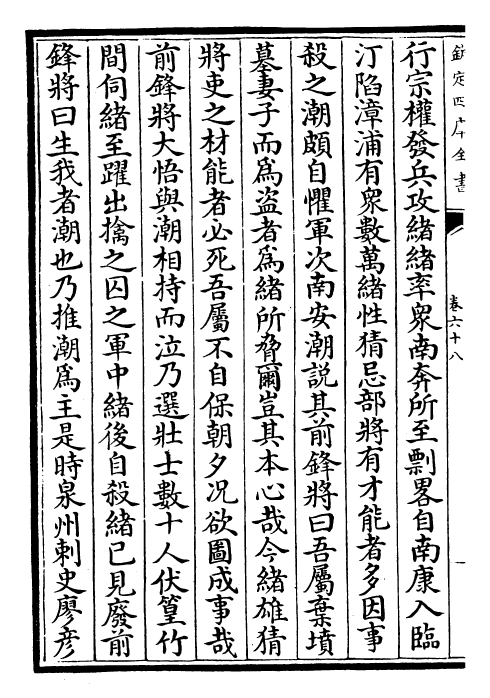 欽定四庫全書
卷六十八
一
行宗權發兵攻緒緒率衆南奔所至剽畧自南康入臨
汀陷漳浦有衆數萬緒性猜忌部將有才能者多因事
殺之潮頗自懼軍次南安潮説其前鋒將曰吾屬棄墳
墓妻子而爲盜者爲緒所脅爾豈其本心哉今緒雄猜
將吏之材能者必死吾屬不自保朝夕况欲圖成事哉
前鋒將大悟與潮相持而泣乃選壯士數十人伏篁竹
間伺緒至躍出擒之囚之軍中緒後自殺緒已見廢前
鋒將曰生我者潮也乃推潮爲主是時泉州刺史廖彦